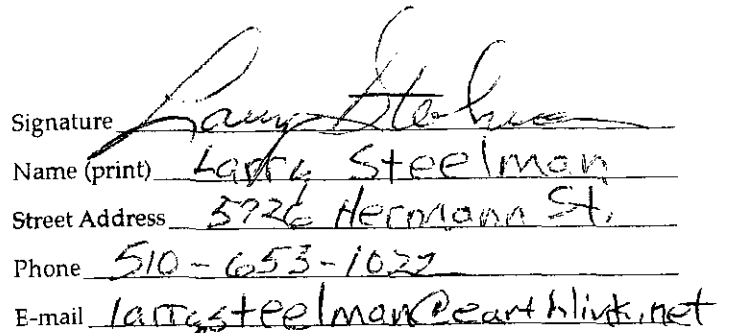 Signature Larry Steelman
Name (print) Larry Steelman
Street Address 5726 Hermann St.
Phone 510-653-1022
E-mail larrysteelman@earthlink.net